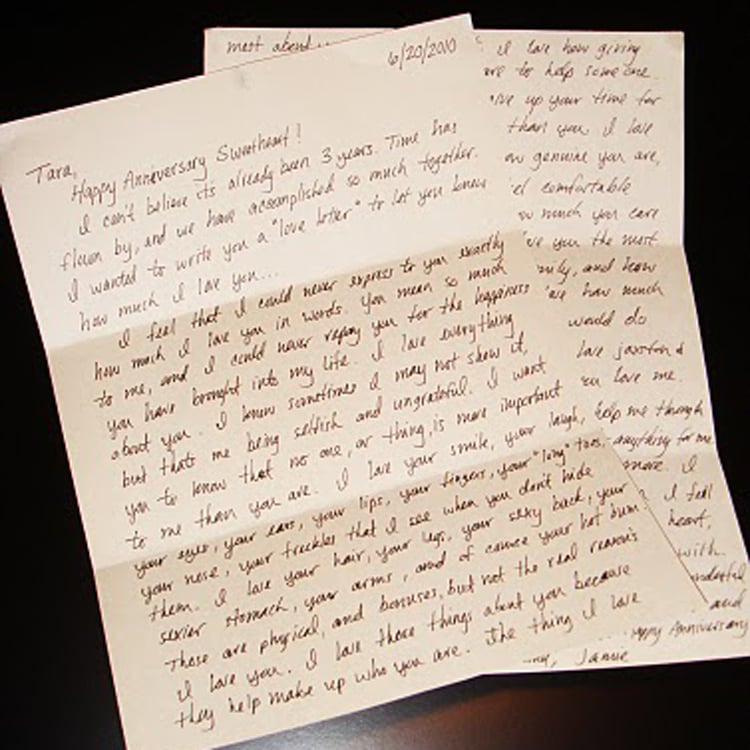 6/20/2010
Tara,
Happy Anniversary Sweetheart!
I can't believe it's already been 3 years. Time has
flown by, and we have accomplished so much together.
I wanted to write you a "love letter" to let you know
how much I love you...
I feel that I could never express to you exactly
how much I love you in words. You mean so much
to me, and I could never repay you for the happiness
you have brought into my life. I love everything
about you. I know sometimes I may not show it,
but thats me being selfish and ungrateful. I want
you to know that no one, or thing, is more important
to me than you are. I love your smile, your laugh,
your eyes, your ears, your lips, your fingers, your "long" toes,
your nose, your freckles that I see when you don't hide
them. I love your hair, your legs, your sexy back, your
sexier stomach, your arms, and of course your hot bum.
Those are physical, and bonuses, but not the real reason's
I love you. I love those things about you because
they help make up who you are. The thing I love
most about...
I love how giving
are to help someone.
up your time for
than you. I love
genuine you are,
comfortable
much you care
you the most.
and how
how much
would do
love jaxston &
love me.
help me through
anything for me
more. I
I feel
heart,
with
and
Happy Anniversary
Jamie